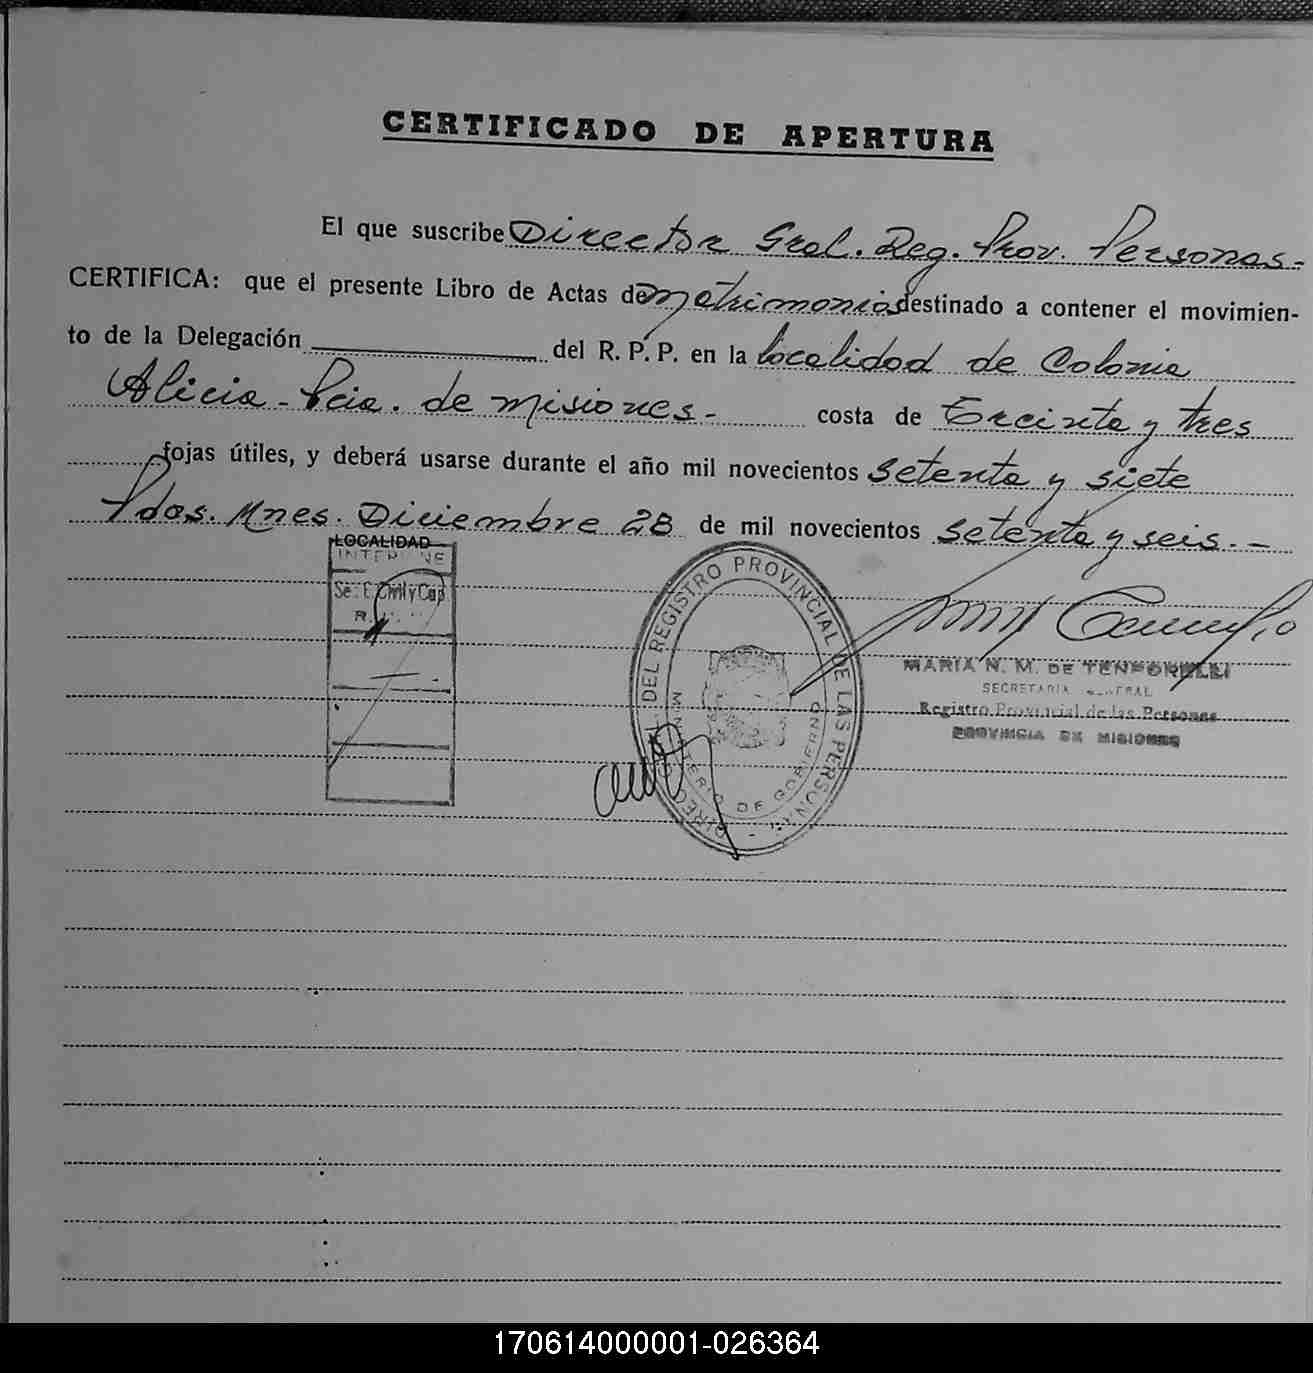 CERTIFICADO DE APERTURA
El que suscribe Director Gral. Reg. Prov. Personas.-
CERTIFICA: que el presente Libro de Actas de Matrimonios destinado a contener el movimien-
to de la Delegación del R. P. P. en la localidad de Colonia
Alicia - Pcia. de Misiones.- costa de Treinta y tres
fojas útiles, y deberá usarse durante el año mil novecientos setenta y siete
Pdas. Mnes. Diciembre 28 de mil novecientos setenta y seis.-
LOCALIDAD
INTERVINE
Se: E. Civil y Cap
DIREC. GRAL. DEL REGISTRO PROVINCIAL DE LAS PERSONAS
MINISTERIO DE GOBIERNO
MARIA N. M. DE TENFORELLI
SECRETARIA GENERAL
Registro Provincial de las Personas
PROVINCIA DE MISIONES
170614000001-026364